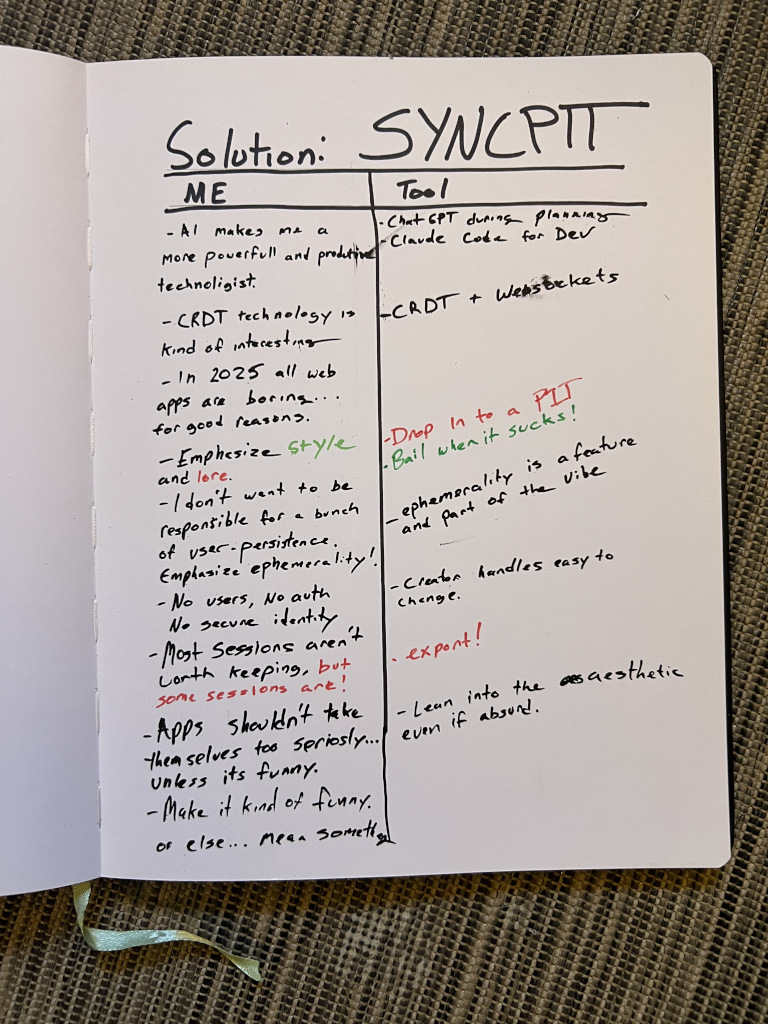 Solution: SYNCPIT
ME
- AI makes me a
more powerfull and produtive
technoligist.
- CRDT technology is
kind of interesting
- In 2025 all web
apps are boring...
for good reasons.
- Emphasize style
and lore.
- I don't want to be
responsible for a bunch
of user-persistence.
Emphasize ephemerality!
- No users, No auth
No secure identity
- Most sessions aren't
worth keeping, but
some sessions are!
- Apps shouldn't take
themselves too seriosly...
unless its funny.
- Make it kind of funny.
or else... mean somethg
Tool
- Chat GPT during planning
- Claude Code for Dev
- CRDT + Websockets
- Drop In to a PIT
- Bail when it sucks!
- ephemerality is a feature
and part of the vibe
- Creator handles easy to
change.
. export!
- Lean into the aesthetic
even if absurd.